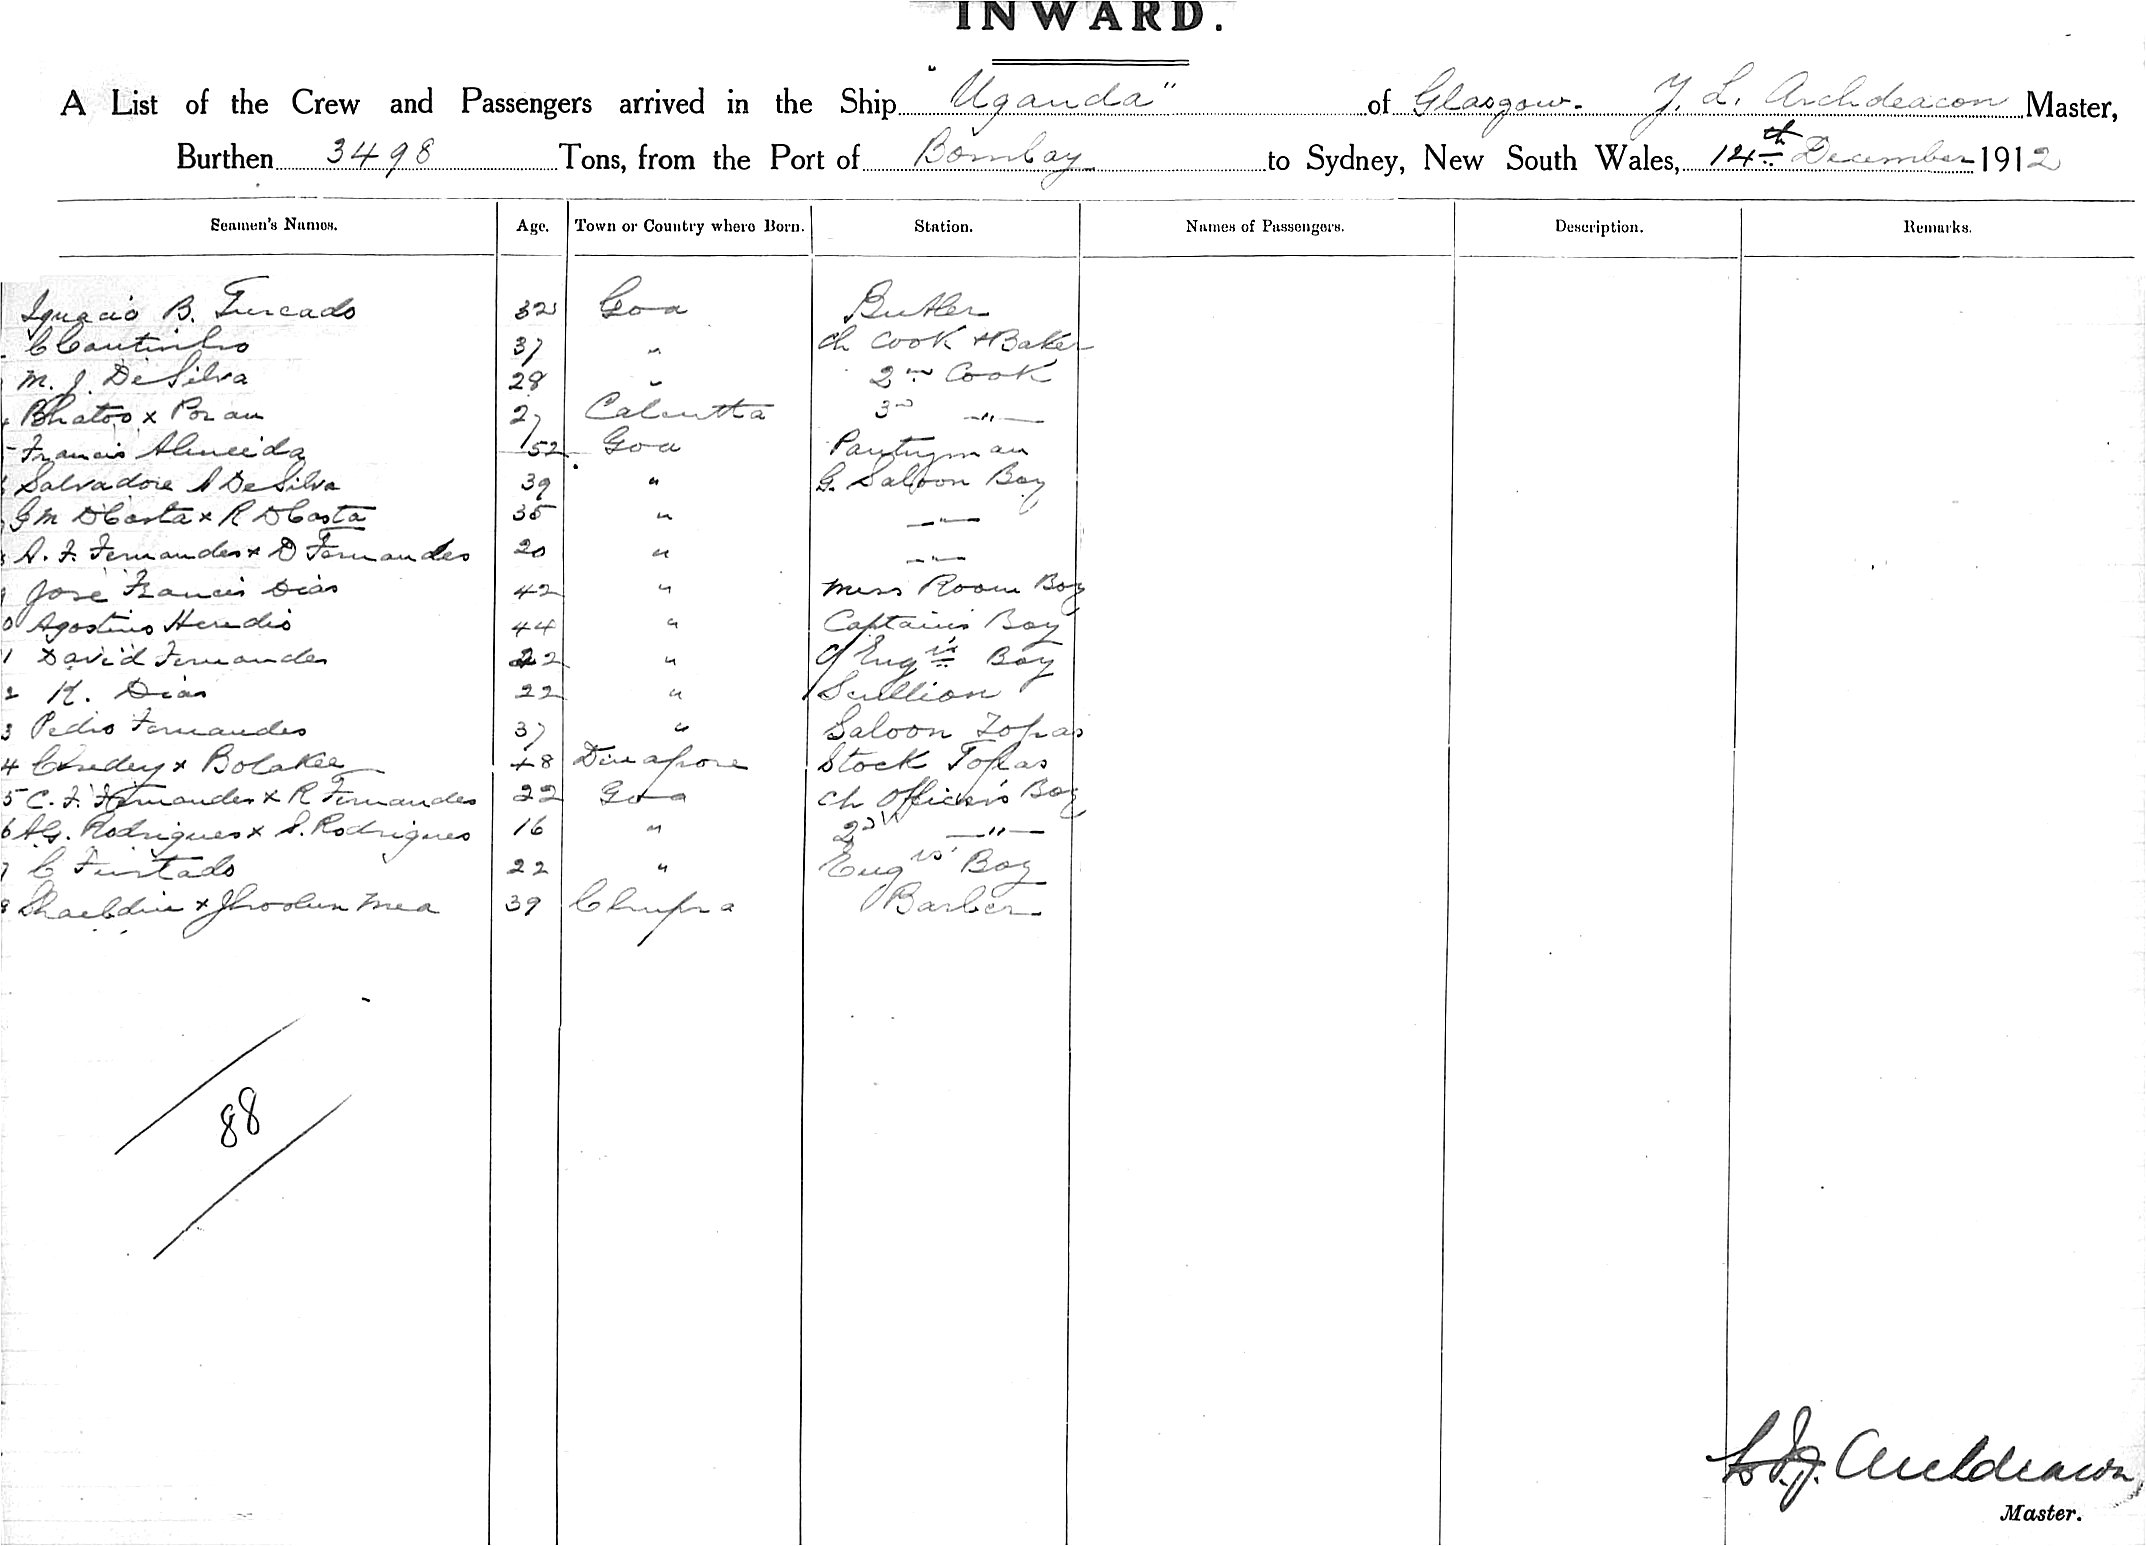 INWARD.
A List of the Crew and Passengers arrived in the Ship "Uganda" of Glasgow. Y. L. Archdeacon Master,
Burthen 3498 Tons, from the Port of Bombay to Sydney, New South Wales, 14th December 1912
Seamen's Names. Age. Town or Country where Born. Station. Names of Passengers. Description. Remarks.
Ignacio B. Furcado 32 Goa Butler
C Coutinho 37 " Ch Cook + Baker
M. J. DeSilva 28 " 2nd Cook
Bhatoo x Poran 27 Calcutta 3rd —"—
5 Francis Almeida 52 Goa Pantryman
Salvadore A DeSilva 39 " G. Saloon Boy
G M DCosta x R DCosta 35 " —"—
8 A. F. Fernandes x D Fernandes 20 " —"—
9 Jose Francis Dias 42 " Mess Room Boy
0 Agostino Heredio 44 " Captain's Boy
1 David Fernandes 22 " C/Eng rs Boy
2 K. Dias 22 " Scullion
3 Pedro Fernandes 37 " Saloon Topas
4 x Bolakee 48 Dinapore Stock Topas
5 C. F. Fernandes x R Fernandes 22 Goa Ch Officer's Boy
6 A.G. Rodrigues x S. Rodrigues 16 " 2nd —"—
7 C Furtado 22 " Eng rs' Boy
8 x Mea 39 Chupra Barber
88
Archdeacon
Master.